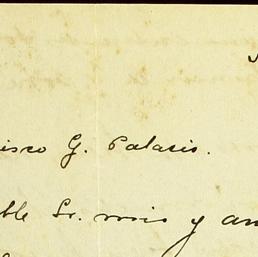 isco G. Palacio.
ble Sr. mio y am